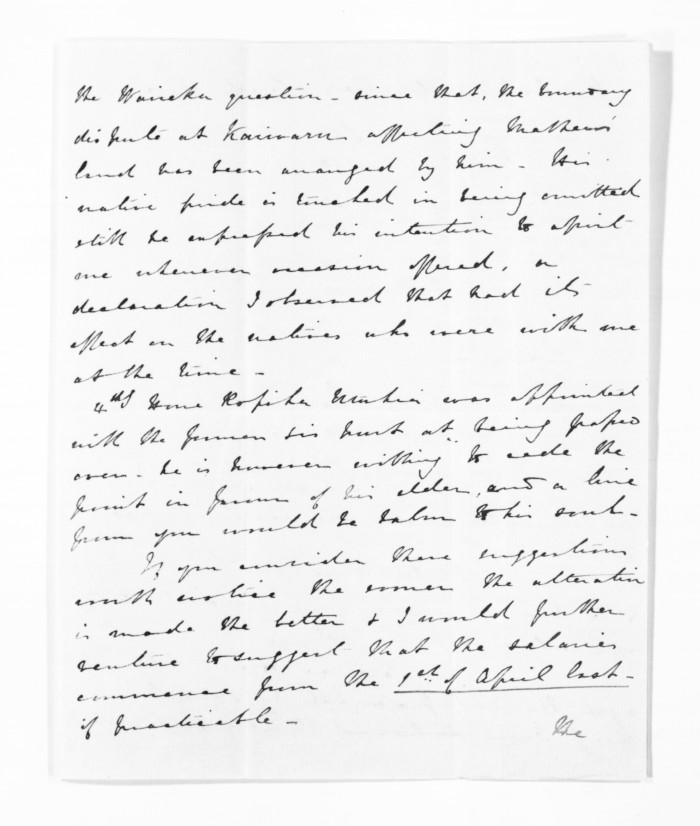 the Waireka question – since that, the boundary
dispute at Kaiwaru affecting Mathews'
land has been arranged by him – His
native pride is touched in being omitted
still he expressed his intention to assist
me whenever occasion offered, a
declaration I observed that had its
effect on the natives who were with me
at the time –
4th Hone Ropiha was appointed
with the former & is hurt at being passed
over – he is however willing to cede the
point in favour of his elder, and a line
from you would be balm to his soul –
If you consider these suggestions
worth notice the sooner the alteration
is made the better & I would further
venture to suggest that the salaries
commence from the 1st of April last –
if practicable –
the